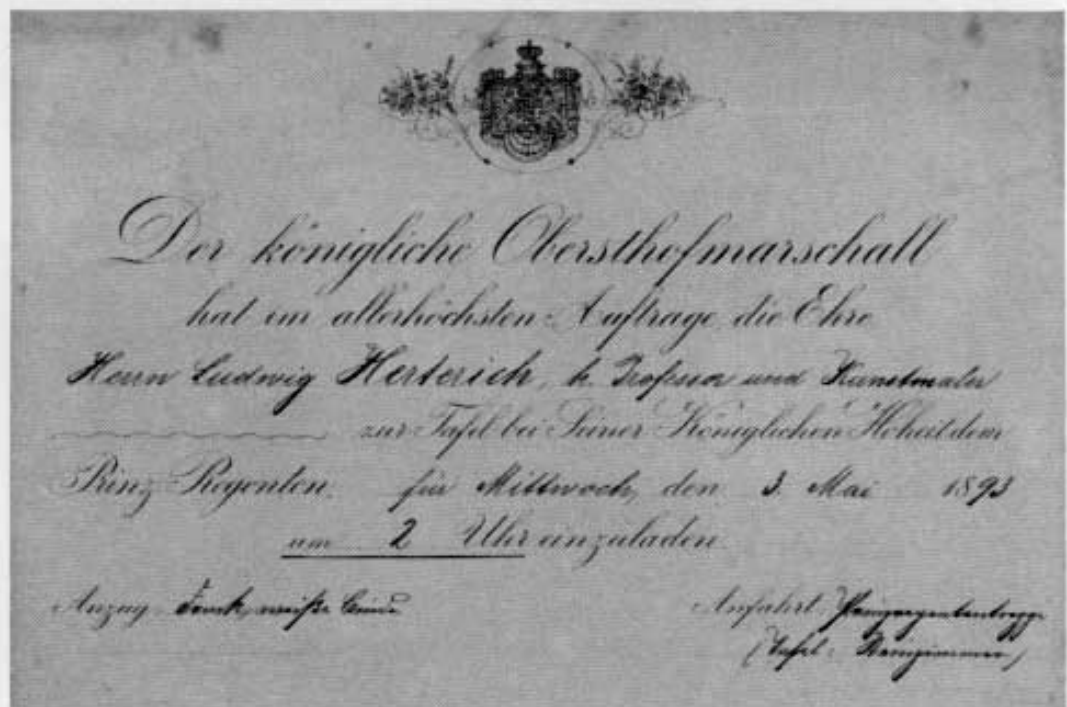 Der königliche Obersthofmarschall
hat im allerhöchsten Auftrage die Ehre
Herrn Ludwig Herterich, k. Professor und Kunstmaler
zur Tafel bei Seiner Königlichen Hoheit dem
Prinz-Regenten für Mittwoch, den 3. Mai 1893
um 2 Uhr einzuladen.
Anzug: Frack, weiße Binde
Anfahrt: Prinzregententreppe
(Tafel: Steinzimmer)